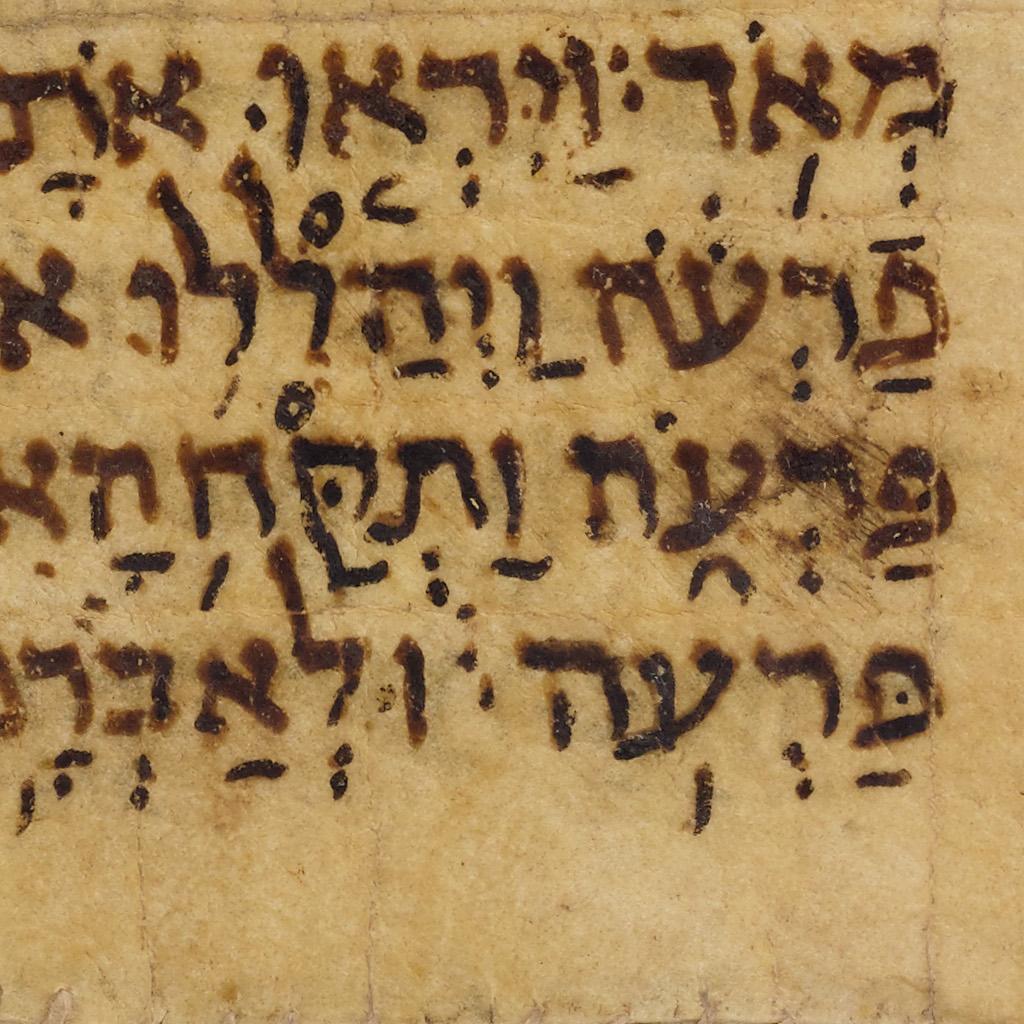 מְאֹד׃ וַיִּרְאוּ אֹתָ
פַרְעֹה וַיְהַלְלוּ א
פַּרְעֹה וַתֻּקַּח הָא
פַּרְעֹה׃ וּלְאַבְרָ